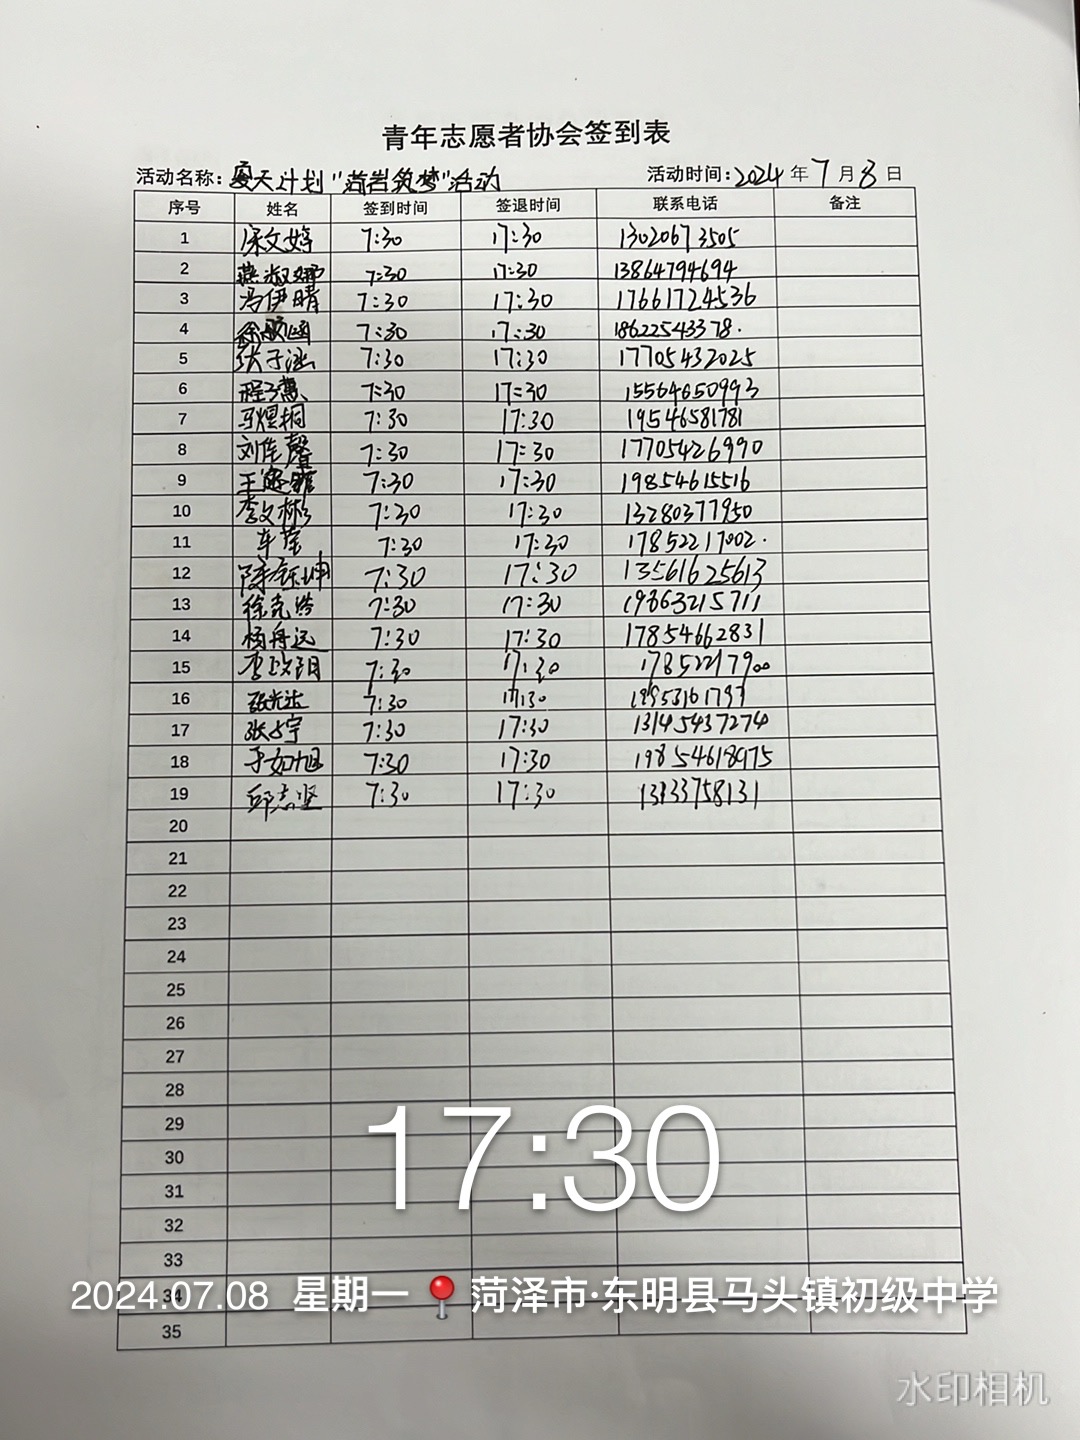 青年志愿者协会签到表
活动名称：夏天计划"菁岩筑梦"活动 活动时间：2024 年 7 月 8 日
序号 姓名 签到时间 签退时间 联系电话 备注
1 7:30 17:30 13020673505
2 7:30 17:30 13864794694
3 冯伊晴 7:30 17:30 17661724536
4 徐 7:30 17:30 18622543378.
5 张子涵 7:30 17:30 17705432025
6 程子慧 7:30 17:30 15564650993
7 马煜桐 7:30 17:30 19546581781
8 刘佳馨 7:30 17:30 17705426990
9 王 7:30 17:30 19854615516
10 李文彬 7:30 17:30 13280377950
11 车莹 7:30 17:30 17852217002.
12 陈钰坤 7:30 17:30 13561625613
13 徐克 7:30 17:30 19863215711
14 杨舟远 7:30 17:30 17854662831
15 李 7:30 17:30 17852217900
16 张 7:30 17:30
17 张 宇 7:30 17:30 13145437274
18 于如旭 7:30 17:30 19854618975
19 邱志坚 7:30 17:30
20
21
22
23
24
25
26
27
28
29
17:30
30
31
32
33
34
2024.07.08 星期一 菏泽市·东明县马头镇初级中学
35
水印相机